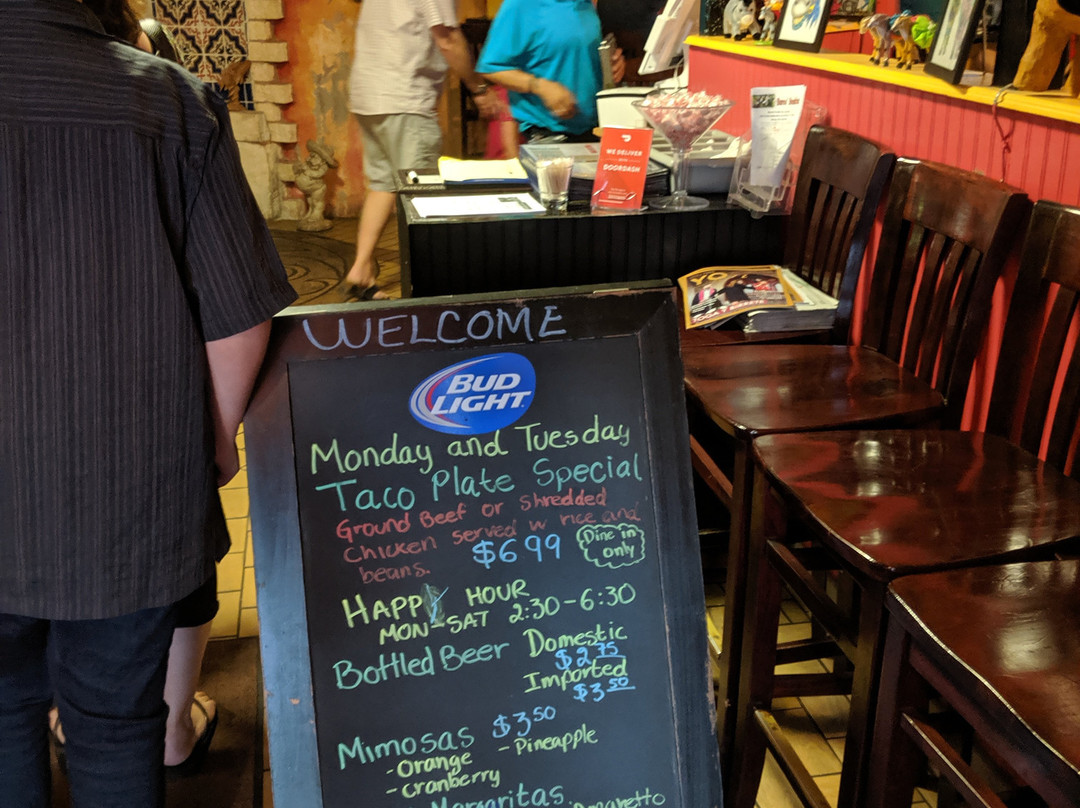 WELCOME
BUD
LIGHT
Monday and Tuesday
Taco Plate Special
Ground Beef or Shredded
Chicken served w rice and
beans. $6 99
Dine in
only
HAPPY HOUR
MON-SAT 2:30-6:30
Bottled Beer Domestic
$2 75
Imported
$3 50
Mimosas $3 50
-Orange -Pineapple
-Cranberry
Margaritas
Amaretto
WE DELIVER
DOORDASH